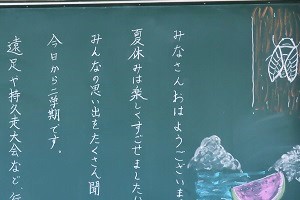 みなさんおはようございま
夏休みは楽しくすごせましたい
みんなの思い出をたくさん聞
今日から二学期です。
遠足や持久走大会など、行